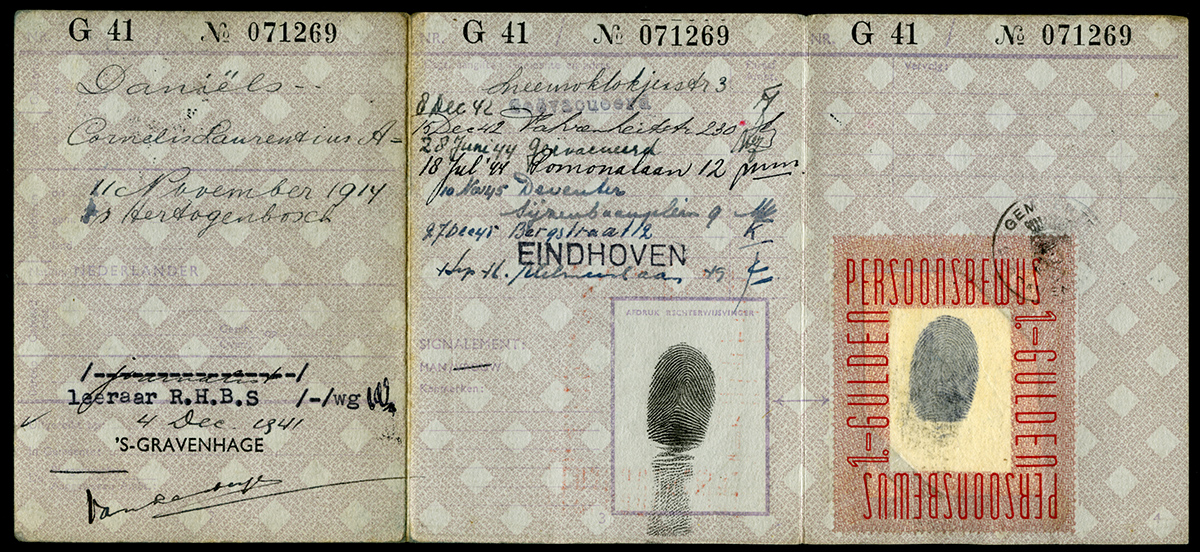 NR. G 41 / № 071269
Daniëls
Cornelis Laurentius A
11 November 1914
's Hertogenbosch
NEDERLANDER
leeraar R.H.B.S /-/wg
4 Dec 1941
'S-GRAVENHAGE
NR. G 41 / № 071269
Sneeuwklokjesstr 3
8 Dec 42 Geëvacueerd
15 Dec 42 Fahrenheitstr 230
28 Juni 44 Geevacueerd
18 Jul '44 Pomonalaan 12
10 Nov 45 Deventer
9
27 Dec 45 Bergstraat 12
EINDHOVEN
19
AFDRUK RECHTERWIJSVINGER
SIGNALEMENT:
MAN
Kenmerken:
3
NR. G 41 / № 071269
GEM
PERSOONSBEWIJS
1.-GULDEN
1.-GULDEN
PERSOONSBEWIJS
4